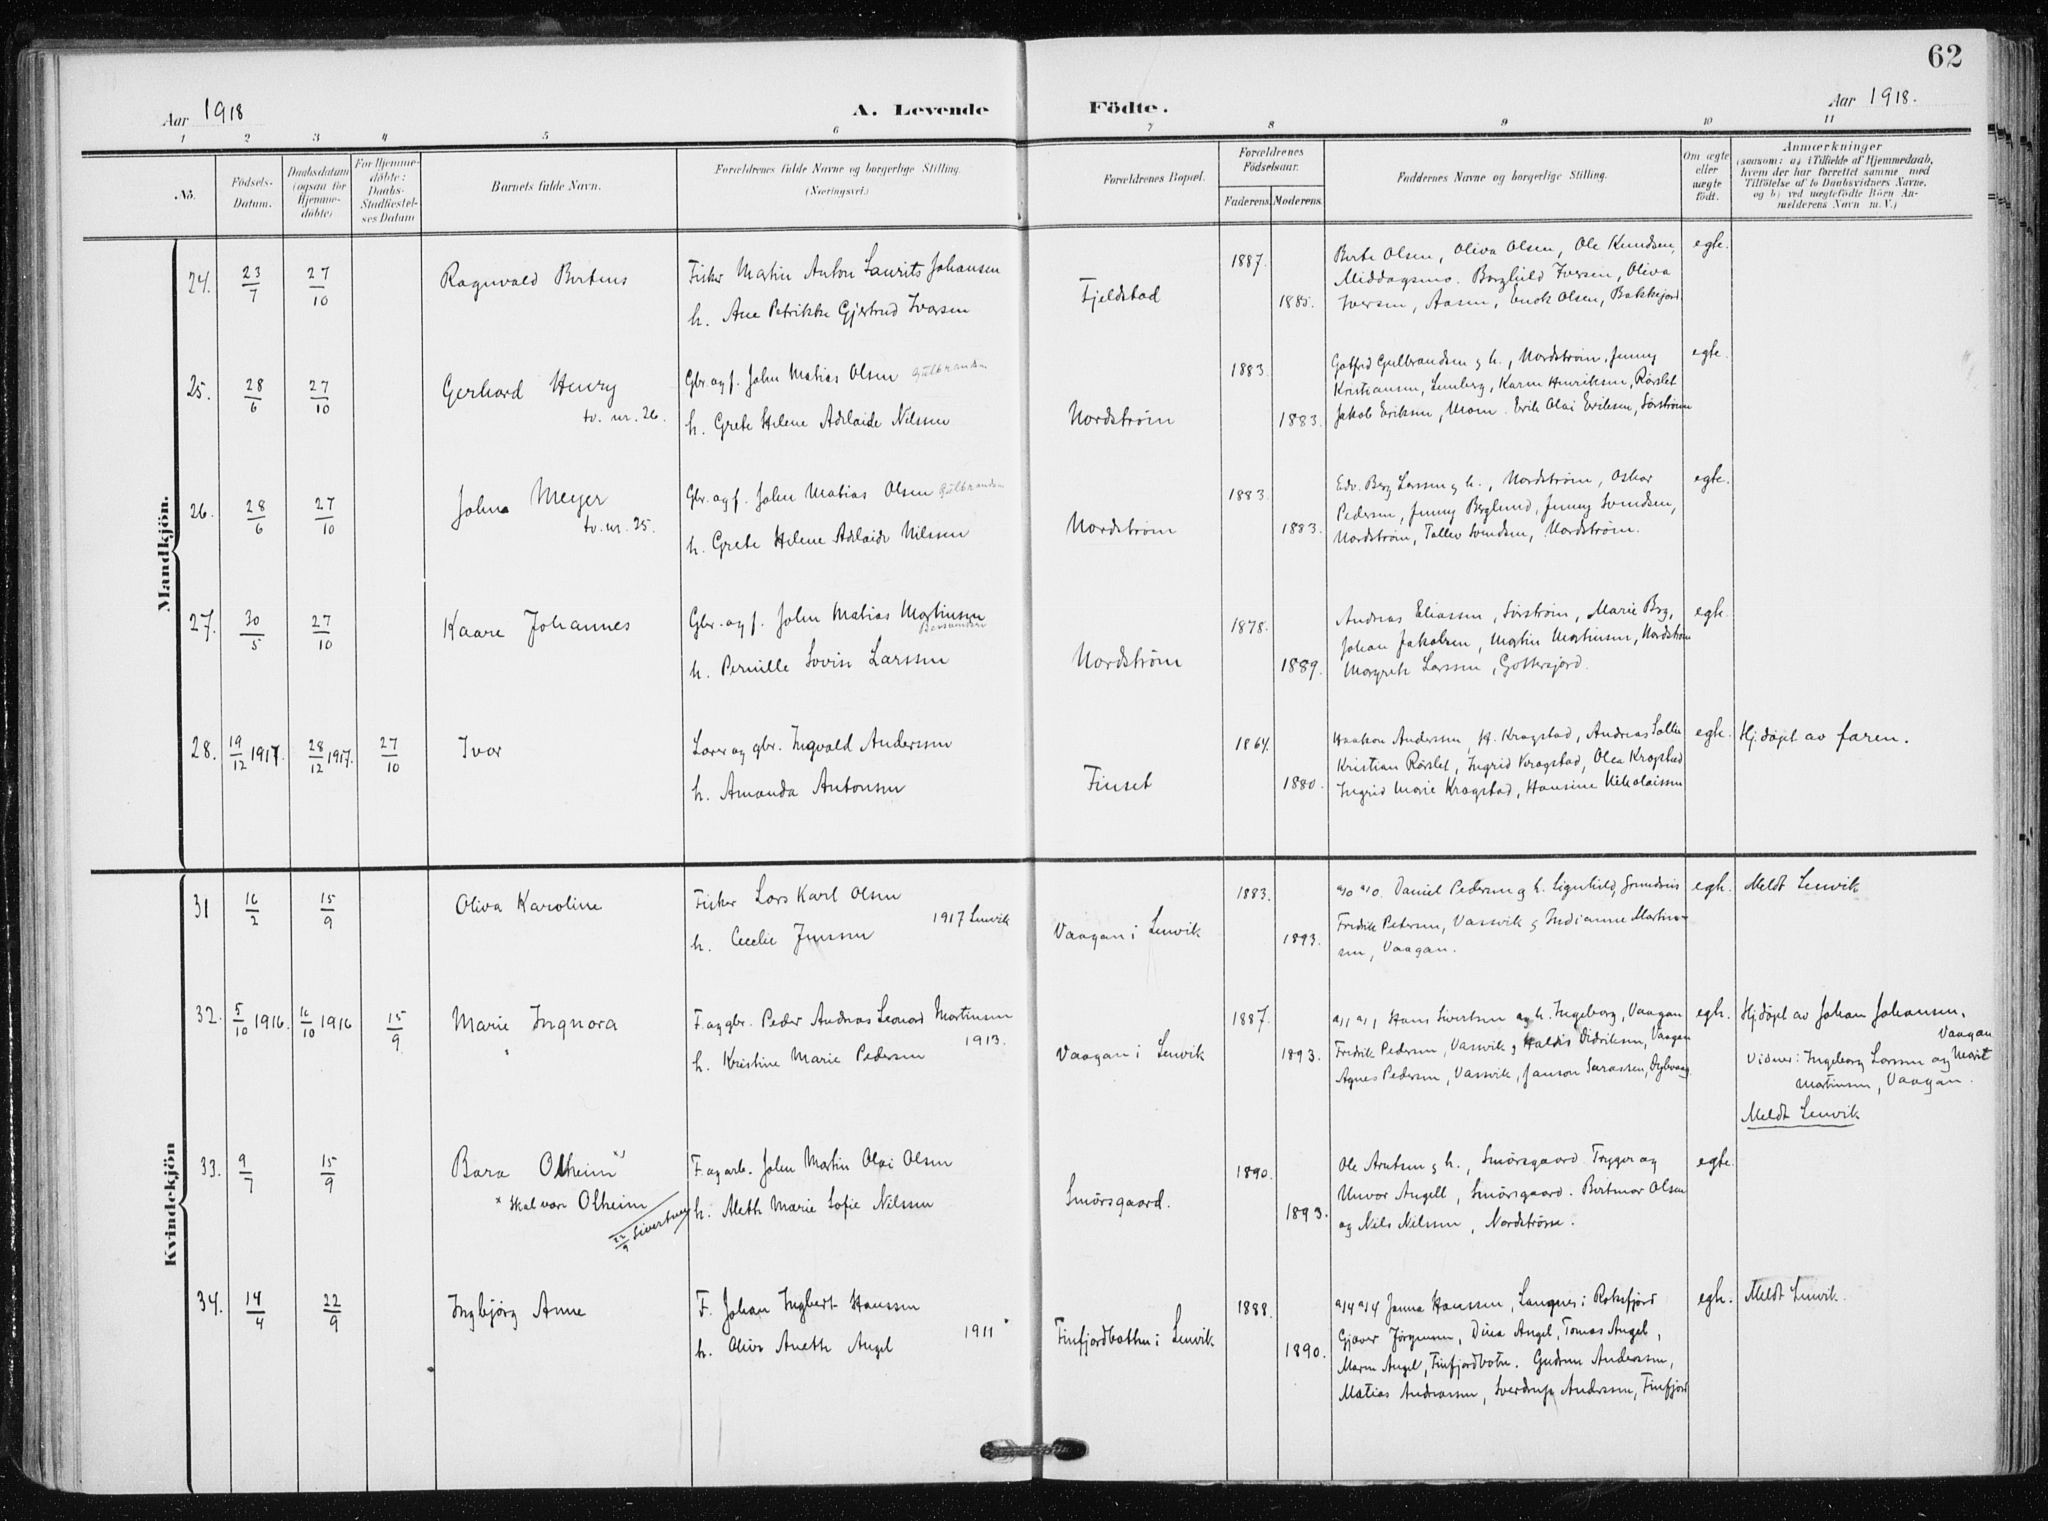 62
Aar 1918
A. Levende
Födte.
Aar 1918.
1 2 3 4 5 6 7 8 9 10 11
No.
Födsels-Datum.
Daabsdatum (ogsaa for Hjemme-döbte)
For Hjemme-döbte: Daabs-Stadfæstel-ses Datum
Barnets fulde Navn.
Forældrenes fulde Navne og borgerlige Stilling.
(Næringsvei.)
Forældrenes Bopæl.
Forældrenes Födselsaar.
Faderens. Moderens.
Faddernes Navne og borgerlige Stilling.
Om ægte eller uægte födt.
Anmærkninger
(saasom: a) i Tilfælde af Hjemmedaab,
hvem der har forrettet samme, med
Tilföielse af to Daabsvidners Navne,
og b) ved uægtefödte Börn An-
melderens Navn m. V.)
Mandkjön.
24. 23/7 27/10 Ragnvald Bertens
Fisker Martin Anton Laurits Johansen
h. Ane Petrikke Gjertrud Iversen
Fjeldstad
1887.
1885.
Berte Olsen, Oliva Olsen, Ole Knudsen,
Middagsmo. Borghild Iversen, Oliva
Iversen, Aasen, Enok Olsen, Bakkejord
egte.
25. 28/6 27/10 Gerhard Henry
tv. nr. 26.
Gbr. og f. John Matias Olsen Gulbrandsen
h. Grete Helene Adelaide Nilssen
Nordstrøm
1883.
1883.
Gotfred Gulbrandsen & h., Nordstrøm, Jenny
Kristiansen, Lenberg, Karen Henriksen, Rørslet
Jakob Eriksen, Moen. Erik Olai Eriksen, Sørstrøm
egte.
26. 28/6 27/10 John Meyer
tv. nr. 25.
Gbr. og f. John Matias Olsen Gulbrandsen
h. Grete Helene Adelaide Nilssen
Nordstrøm
1883.
1883.
Edv. Berg Larssen & h., Nordstrøm, Oskar
Pedersen, Jenny Berglund, Jenny Svendsen,
Nordstrøm, Tollev Svendsen, Nordstrøm.
egte.
27. 30/5 27/10 Kaare Johannes
Gbr. og f. John Matias Martinsen
h. Pernille Lovise Larssen
Nordstrøm
1878.
1889.
Andreas Eliassen, Sørstrøm, Marie Berg,
Johan Jakobsen, Martin Martinsen, Nordstrøm
Margrete Larssen, Gottesjord.
egte.
28. 19/12 1917. 28/12 1917. 27/10 Ivar
Lærer og gbr. Ingvald Anderssen
h. Amanda Antonsen
Finset
1864.
1880.
Haakon Anderssen, H. Kragstad, Andreas
Kristian Rørslet, Ingrid Kragstad, Olea Kragstad
Ingrid Marie Kragstad, Hansine Nikolaissen
egte.
Hj.døpt av faren.
Kvindekjön
31 16/2 15/9 Oliva Karoline
Fisker Lars Karl Olsen
1917 Lenvik
h. Cecelie Jenssen
Vaagan i Lenvik
1883.
1893.
a/o a/o. Daniel Pedersen & h. Signhild,
Fredrik Pedersen, Vassvik & Indianne Martin-
sen, Vaagan.
egte.
Meldt Lenvik
32. 5/10 1916. 16/10 1916 15/9 Marie Ingnora
F. og gbr. Peder Andreas Leonard Martinsen
1913.
h. Kristine Marie Pedersen
Vaagan i Lenvik
1887.
1893.
a/1 a/1 Hans Sivertsen og h. Ingeborg, Vaagan
Fredrik Pedersen, Vassvik & Haldis Didriksen, Vaagan
Agnes Pedersen, Vassvik, Janson
egte.
Hj.døpt av Johan Johansen,
Vaagan
Vidner: Ingeborg Larssen og Marit
Martinsen, Vaagan.
Meldt Lenvik
33. 9/7 15/9 Bara Olheim x)
x Skal være Olheim
22/9 Sivertsen
F. og arb. John Martin Olai Olsen
h. Aleth Marie Sofie Nilssen
Smörsgaard.
1890.
1893.
Ole Arntsen & h., Smörsgaard. Trygve og
Unvor Angell, Smörsgaard. Bertmar Olsen
og Nils Nilssen, Nordstrøm.
egte.
34. 14/4 22/9 Ingbjörg Anne
F. Johan Ingbert Hanssen
1911
h. Oline Aneth Angel
Finfjordbotten i Lenvik
1888.
1890.
a/4 a/4 Janna Hanssen, Langnes i Roksfjord
Gjøver Jørgensen, Dina Angel, Tomas Angel,
Maren Angel, Finfjordbotn. Gudrun Anderssen,
Matias Andreassen, Sverdrup Anderssen, Finfjord
egte.
Meldt Lenvik.